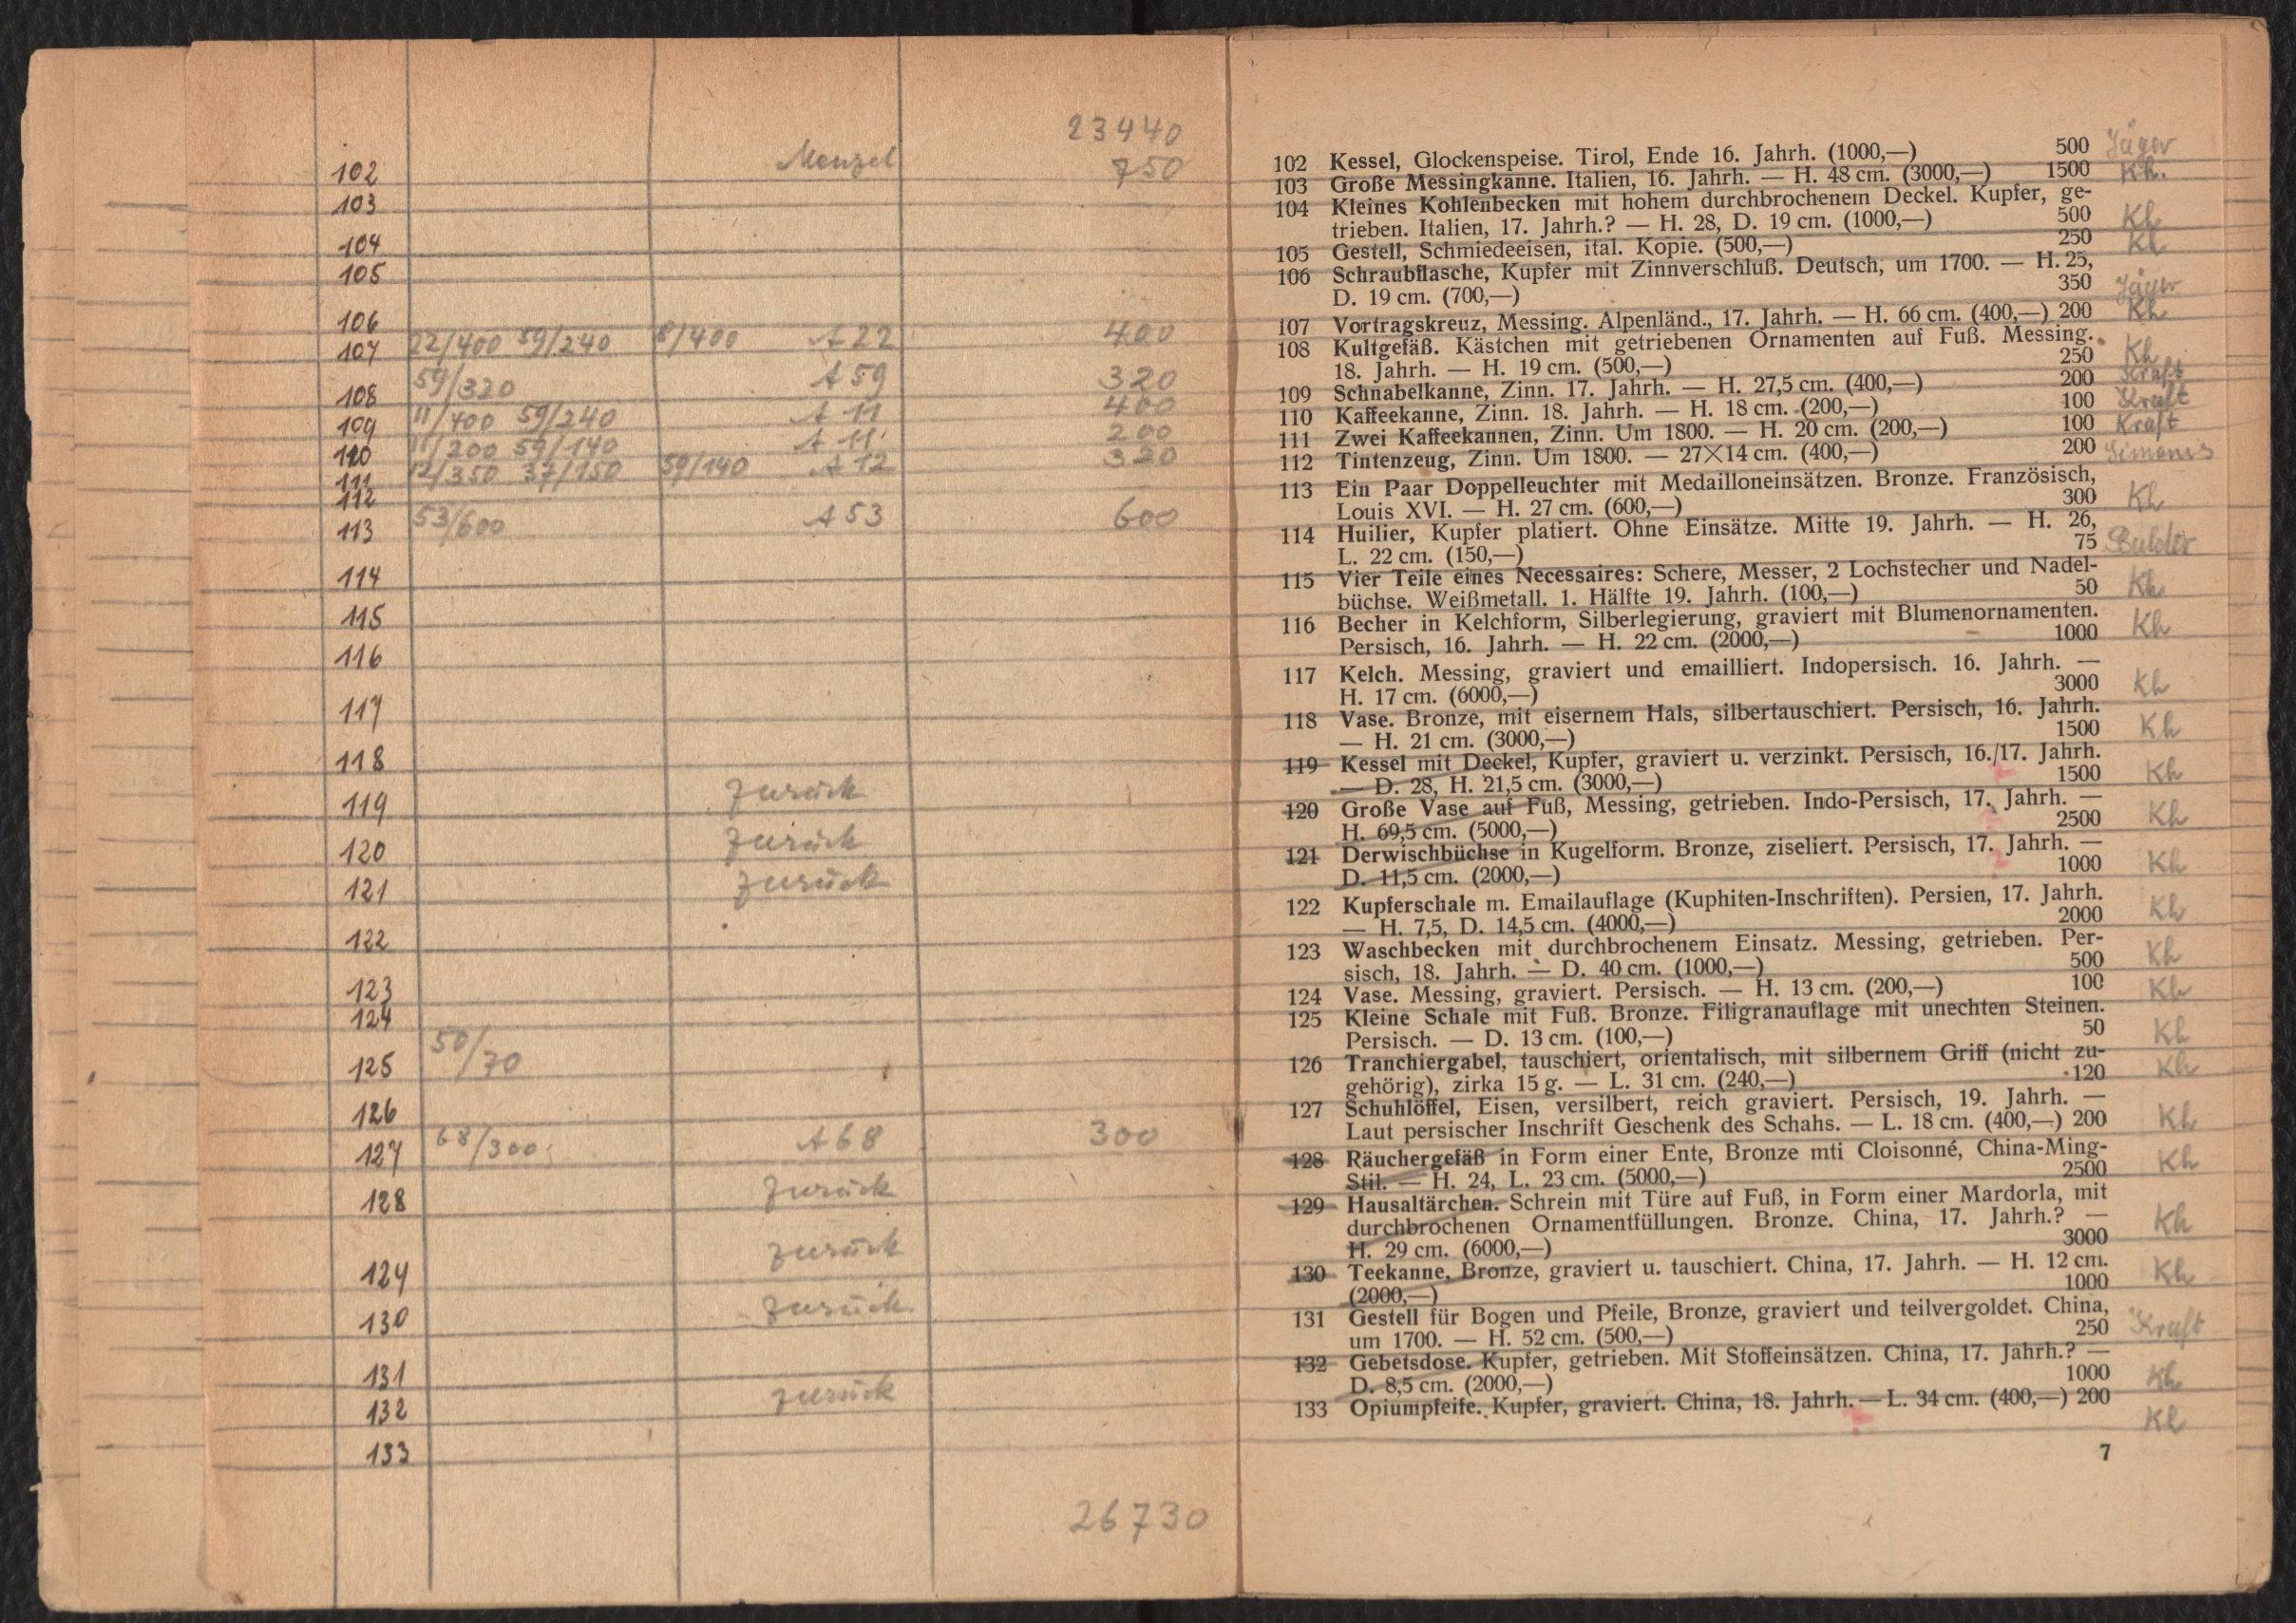 23440
102 Menzel 750
103
104
105
106
107 22/400 59/240 8/400 A 22 400
108 59/320 A 59 320
109 11/400 59/240 A 11 400
110 11/200 59/140 A 11 200
111 12/350 37/150 59/140 A 12 320
112
113 53/600 A 53 600
114
115
116
117
118
119 zurück
120 zurück
121 zurück
122
123
124
125 50/70
126
127 68/300 A 68 300
128 zurück
129 zurück
130 zurück
131
132 zurück
133
26730
102 Kessel, Glockenspeise. Tirol, Ende 16. Jahrh. (1000,—) 500 Jäger
103 Große Messingkanne. Italien, 16. Jahrh. — H. 48 cm. (3000,—) 1500 Kh.
104 Kleines Kohlenbecken mit hohem durchbrochenem Deckel. Kupfer, ge-
trieben. Italien, 17. Jahrh.? — H. 28, D. 19 cm. (1000,—) 500 Kh
105 Gestell, Schmiedeeisen, ital. Kopie. (500,—) 250 Kh
106 Schraubflasche, Kupfer mit Zinnverschluß. Deutsch, um 1700. — H. 25,
D. 19 cm. (700,—) 350 Jäger
107 Vortragskreuz, Messing. Alpenländ., 17. Jahrh. — H. 66 cm. (400,—) 200 Kh
108 Kultgefäß. Kästchen mit getriebenen Ornamenten auf Fuß. Messing.
18. Jahrh. — H. 19 cm. (500,—) 250 Kh
109 Schnabelkanne, Zinn. 17. Jahrh. — H. 27,5 cm. (400,—) 200 Kraft
110 Kaffeekanne, Zinn. 18. Jahrh. — H. 18 cm. (200,—) 100 Kraft
111 Zwei Kaffeekannen, Zinn. Um 1800. — H. 20 cm. (200,—) 100 Kraft
112 Tintenzeug, Zinn. Um 1800. — 27×14 cm. (400,—) 200 Simonis
113 Ein Paar Doppelleuchter mit Medailloneinsätzen. Bronze. Französisch,
Louis XVI. — H. 27 cm. (600,—) 300 Kh
114 Huilier, Kupfer platiert. Ohne Einsätze. Mitte 19. Jahrh. — H. 26,
L. 22 cm. (150,—) 75
115 Vier Teile eines Necessaires: Schere, Messer, 2 Lochstecher und Nadel-
büchse. Weißmetall. 1. Hälfte 19. Jahrh. (100,—) 50 Kh
116 Becher in Kelchform, Silberlegierung, graviert mit Blumenornamenten.
Persisch, 16. Jahrh. — H. 22 cm. (2000,—) 1000 Kh
117 Kelch. Messing, graviert und emailliert. Indopersisch. 16. Jahrh. —
H. 17 cm. (6000,—) 3000 Kh
118 Vase. Bronze, mit eisernem Hals, silbertauschiert. Persisch, 16. Jahrh.
— H. 21 cm. (3000,—) 1500 Kh
119 Kessel mit Deckel, Kupfer, graviert u. verzinkt. Persisch, 16./17. Jahrh.
— D. 28, H. 21,5 cm. (3000,—) 1500 Kh
120 Große Vase auf Fuß, Messing, getrieben. Indo-Persisch, 17. Jahrh. —
H. 69,5 cm. (5000,—) 2500 Kh
121 Derwischbüchse in Kugelform. Bronze, ziseliert. Persisch, 17. Jahrh. —
D. 11,5 cm. (2000,—) 1000 Kh
122 Kupferschale m. Emailauflage (Kuphiten-Inschriften). Persien, 17. Jahrh.
— H. 7,5, D. 14,5 cm. (4000,—) 2000 Kh
123 Waschbecken mit durchbrochenem Einsatz. Messing, getrieben. Per-
sisch, 18. Jahrh. — D. 40 cm. (1000,—) 500 Kh
124 Vase. Messing, graviert. Persisch. — H. 13 cm. (200,—) 100 Kh
125 Kleine Schale mit Fuß. Bronze. Filigranauflage mit unechten Steinen.
Persisch. — D. 13 cm. (100,—) 50 Kh
126 Tranchiergabel, tauschiert, orientalisch, mit silbernem Griff (nicht zu-
gehörig), zirka 15 g. — L. 31 cm. (240,—) 120 Kh
127 Schuhlöffel, Eisen, versilbert, reich graviert. Persisch, 19. Jahrh. —
Laut persischer Inschrift Geschenk des Schahs. — L. 18 cm. (400,—) 200 Kh
128 Räuchergefäß in Form einer Ente, Bronze mti Cloisonné, China-Ming-
Stil. — H. 24, L. 23 cm. (5000,—) 2500 Kh
129 Hausaltärchen. Schrein mit Türe auf Fuß, in Form einer Mardorla, mit
durchbrochenen Ornamentfüllungen. Bronze. China, 17. Jahrh.? —
H. 29 cm. (6000,—) 3000 Kh
130 Teekanne, Bronze, graviert u. tauschiert. China, 17. Jahrh. — H. 12 cm.
(2000,—) 1000 Kh
131 Gestell für Bogen und Pfeile, Bronze, graviert und teilvergoldet. China,
um 1700. — H. 52 cm. (500,—) 250 Kraft
132 Gebetsdose. Kupfer, getrieben. Mit Stoffeinsätzen. China, 17. Jahrh.? —
D. 8,5 cm. (2000,—) 1000 Kh
133 Opiumpfeife. Kupfer, graviert. China, 18. Jahrh. — L. 34 cm. (400,—) 200 Kh
7